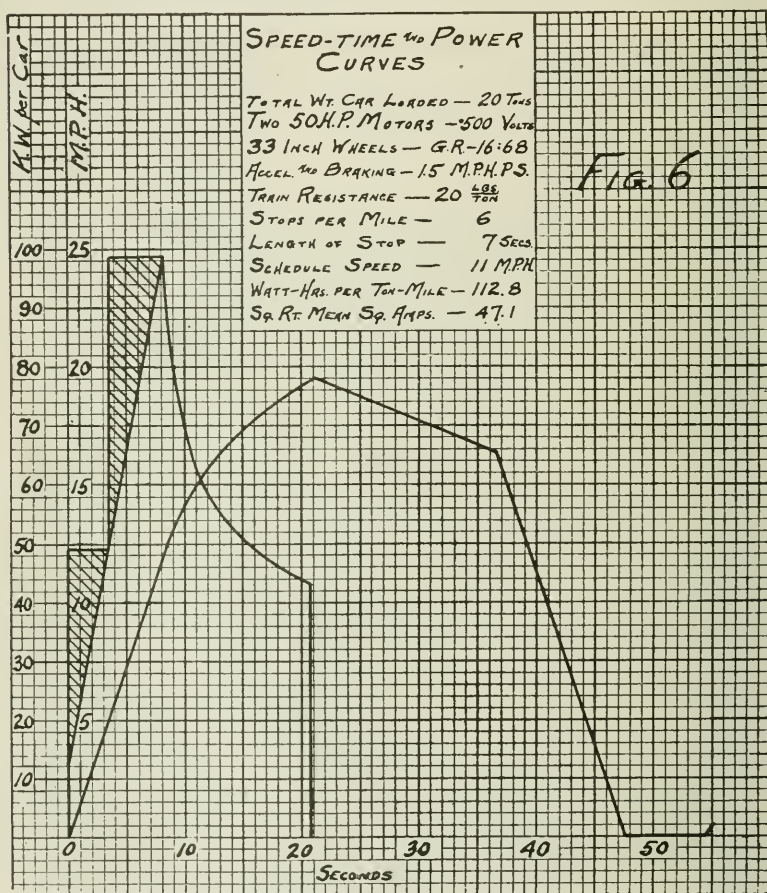 SPEED-TIME AND POWER
CURVES
TOTAL WT. CAR LOADED — 20 TONS
TWO 50 H.P. MOTORS — 500 VOLTS
33 INCH WHEELS — G.R.-16:68
ACCEL. AND BRAKING — 1.5 M.P.H.P.S.
TRAIN RESISTANCE — 20 LBS/TON
STOPS PER MILE — 6
LENGTH OF STOP — 7 SECS.
SCHEDULE SPEED — 11 M.P.H.
WATT-HRS. PER TON-MILE — 112.8
SQ. RT. MEAN SQ. AMPS. — 47.1
FIG. 6
K.W. per Car
M.P.H.
100 25
90
80 20
70
60 15
50
40 10
30
20 5
10
0 10 20 30 40 50
SECONDS